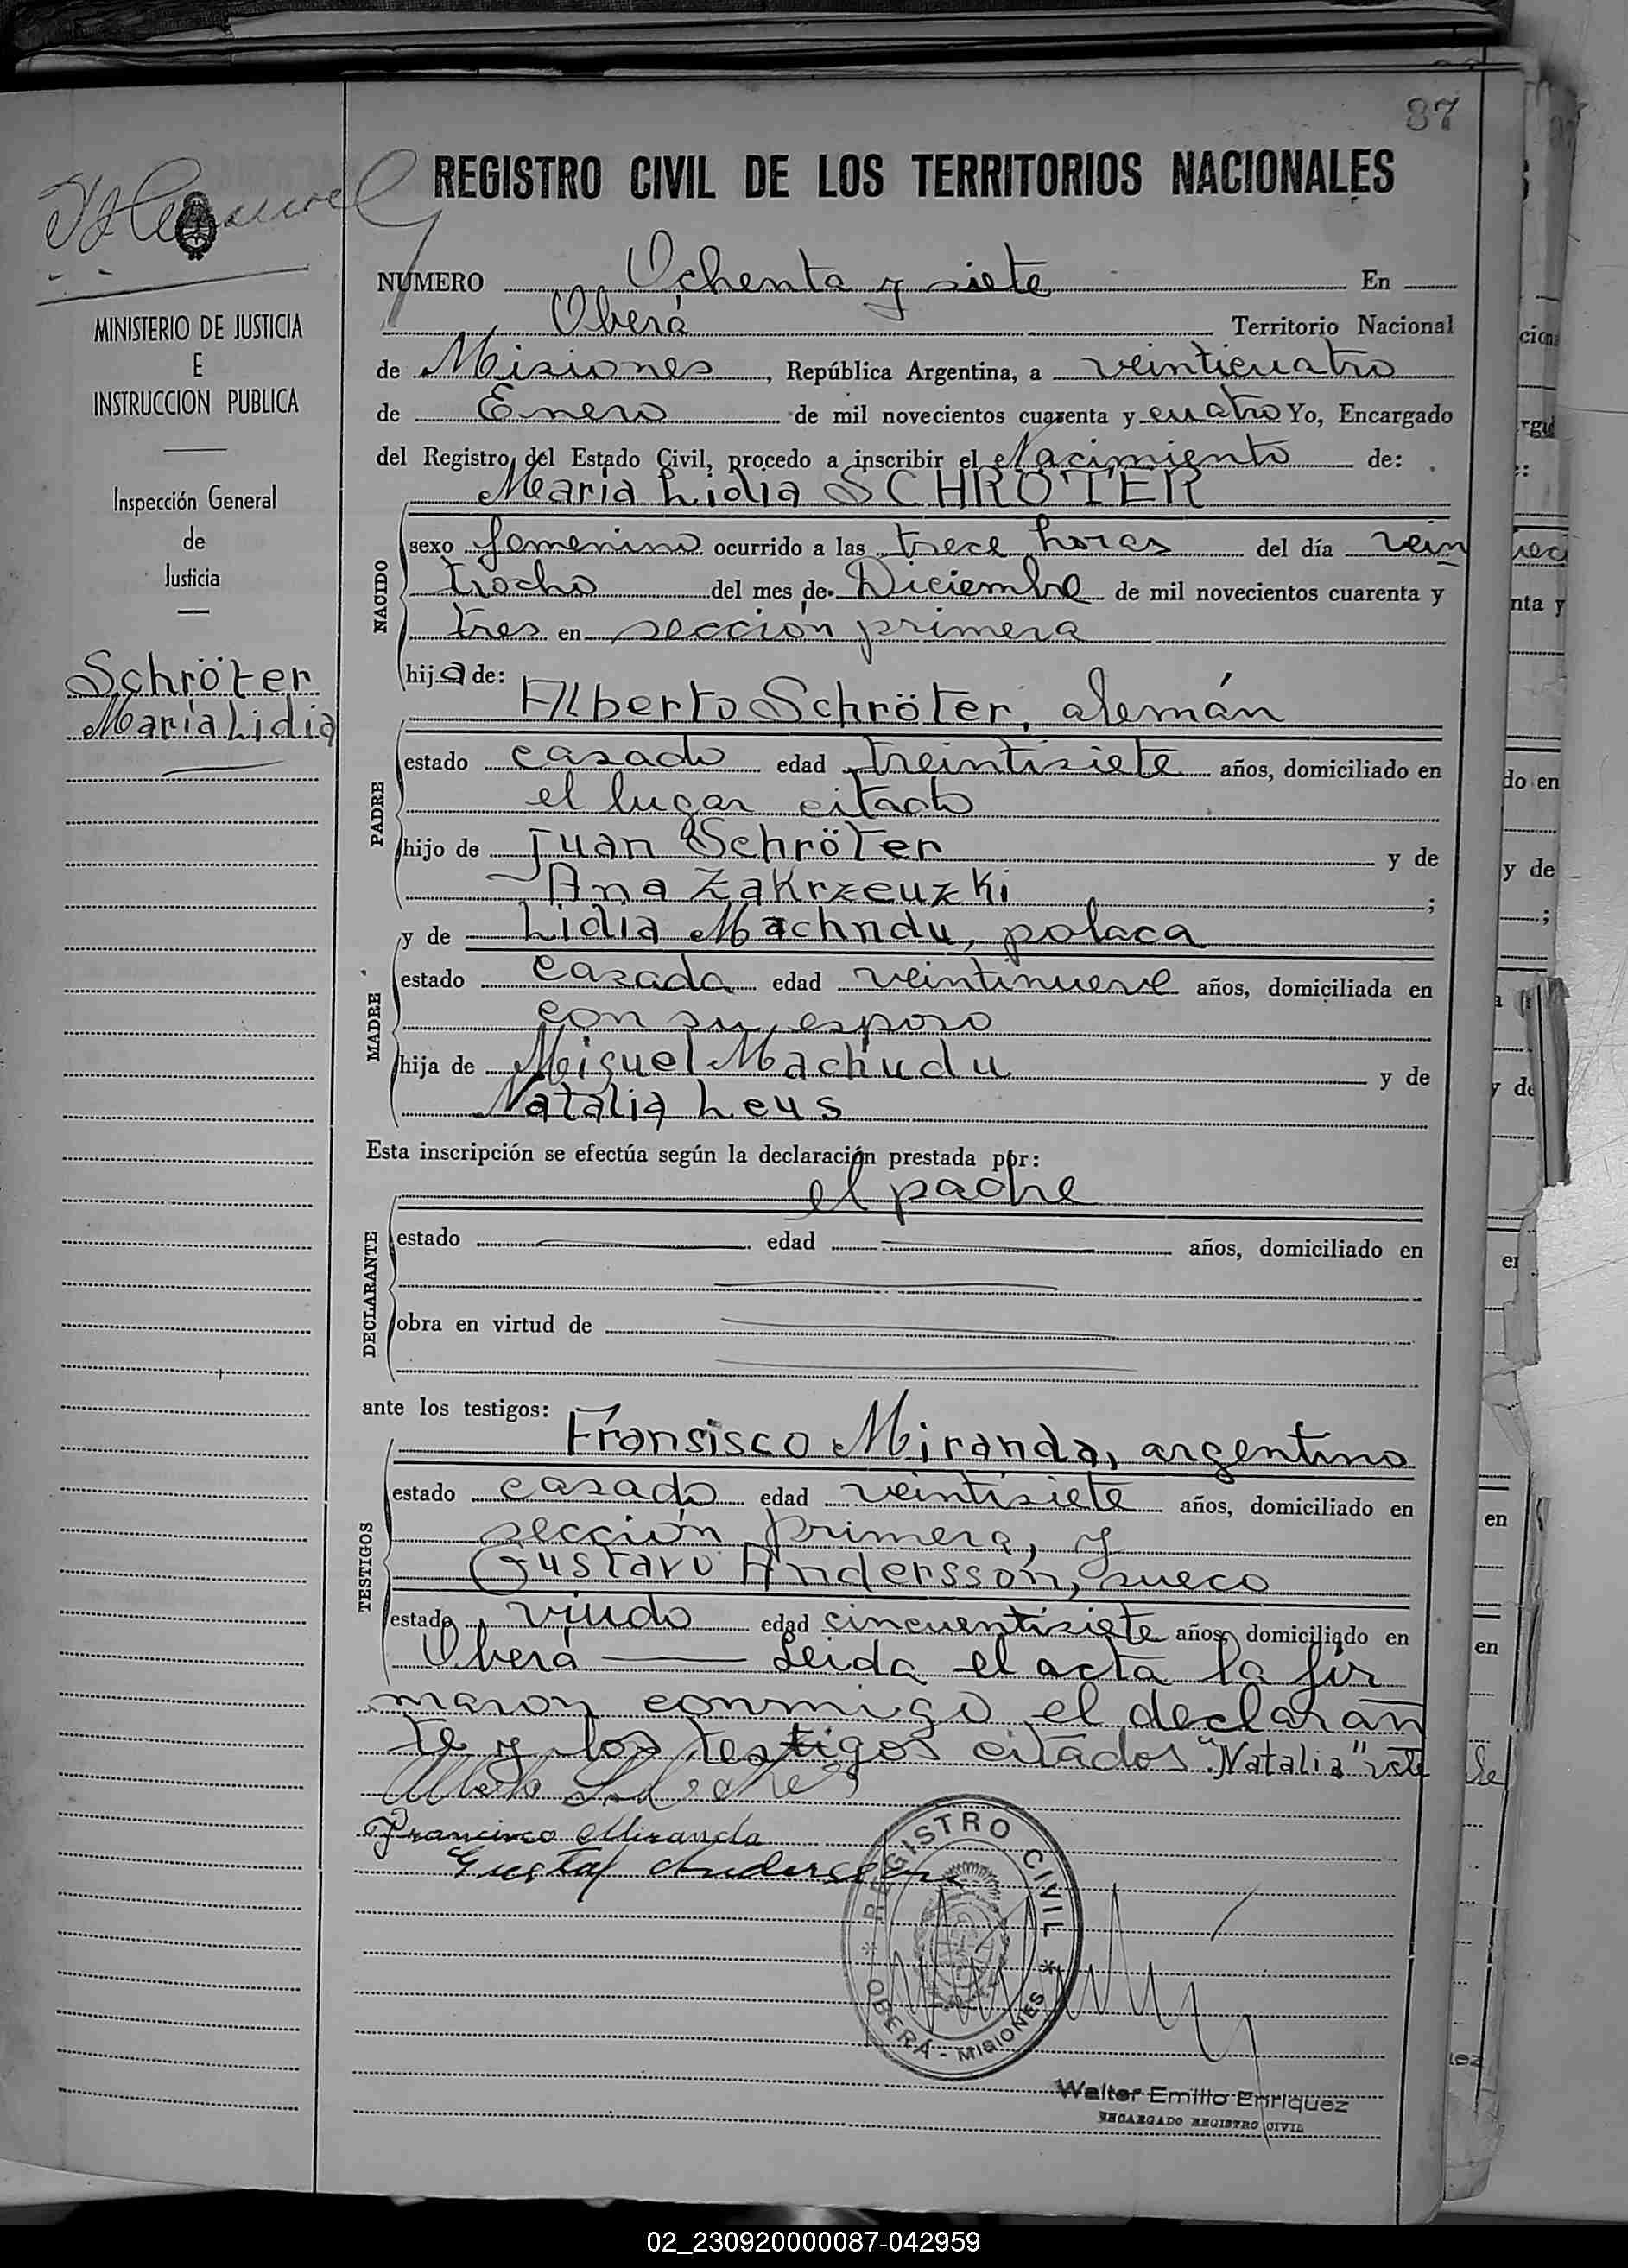 87
REGISTRO CIVIL DE LOS TERRITORIOS NACIONALES
MINISTERIO DE JUSTICIA
E
INSTRUCCION PUBLICA
Inspección General
de
Justicia
Schröter
María Lidia
NUMERO Ochenta y siete En
Oberá Territorio Nacional
de Misiones, República Argentina, a veinticuatro
de Enero de mil novecientos cuarenta y cuatro Yo, Encargado
del Registro del Estado Civil, procedo a inscribir el Nacimiento de:
María Lidia SCHRÖTER
NACIDO
sexo femenino ocurrido a las trece horas del día vein
tiocho del mes de Diciembre de mil novecientos cuarenta y
tres en sección primera
hija de:
Alberto Schröter, alemán
PADRE
estado casado edad treintisiete años, domiciliado en
el lugar citado
hijo de Juan Schröter y de
Ana Zakrzeuzki ;
y de Lidia Machndu, polaca
MADRE
estado casada edad veintinueve años, domiciliada en
con su esposo
hija de Miguel Machudu y de
Natalia Leus
Esta inscripción se efectúa según la declaración prestada por:
el padre
DECLARANTE
estado edad años, domiciliado en
obra en virtud de
ante los testigos:
Fransisco Miranda, argentino
TESTIGOS
estado casado edad veintisiete años, domiciliado en
sección primera, y
Gustavo Andersson, sueco
estado viudo edad cincuentisiete años, domiciliado en
Oberá Leida el acta la fir
maron conmigo el declaran
te y los testigos citados "Natalia"
Francisco Miranda
Gustaf Andersson
REGISTRO CIVIL
OBERÁ - MISIONES
Walter Emilio Enriquez
ENCARGADO REGISTRO CIVIL
02_230920000087-042959